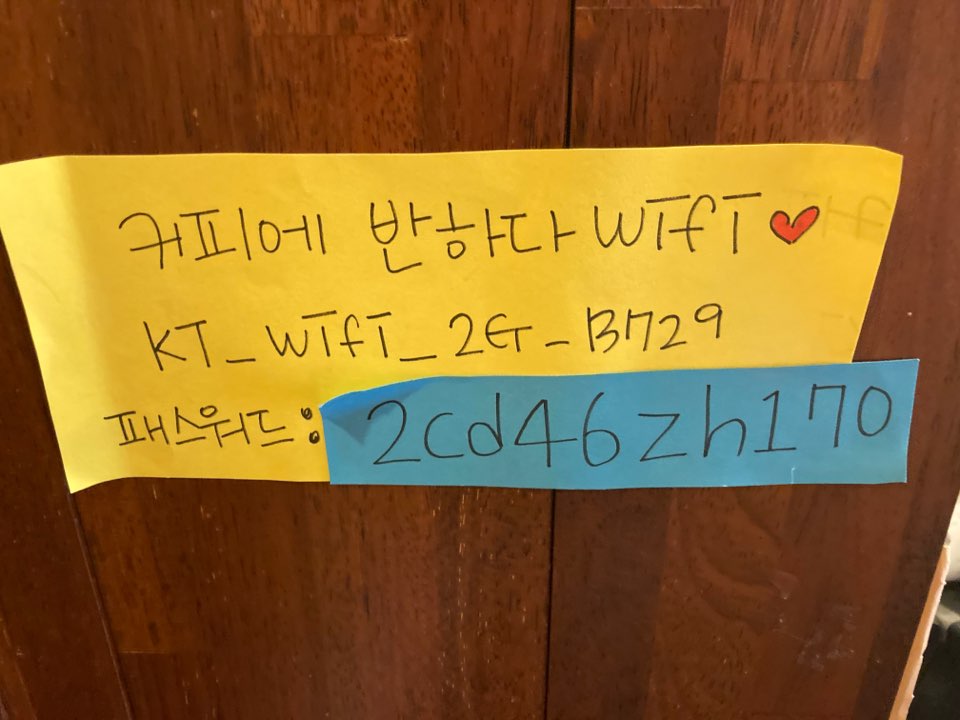 커피에 반하다 WIFI
KT_WIFI_2G_B729
패스워드: 2cd46zh170